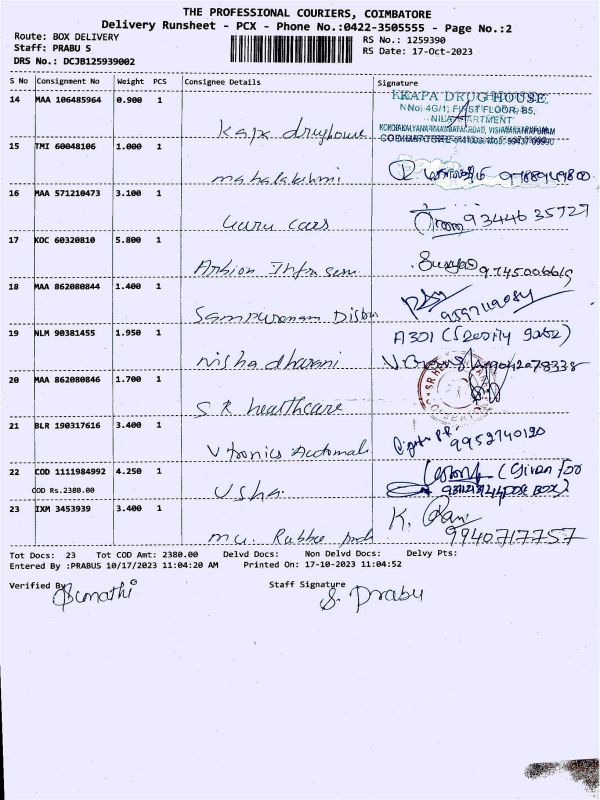 THE PROFESSIONAL COURIERS, COIMBATORE
Delivery Runsheet - PCX - Phone No.:0422-3505555 - Page No.:2
Route: BOX DELIVERY
RS No.: 1259390
Staff: PRABU S
RS Date: 17-Oct-2023
DRS No.: DCJB125939002
S No Consignment No Weight PCS Consignee Details Signature
14 MAA 106485964 0.900 1
KKAPA DRUG HOUSE
No: 4G/1, FIRST FLOOR, B5,
NILA APARTMENT
Kapa drughouse
15 TMI 60048106 1.000 1
mahalakshmi
16 MAA 571210473 3.100 1
Guru cars 93446 35727
17 KOC 60320810 5.800 1
Surya
18 MAA 862080844 1.400 1
Sampuranam Distbu 9597112084
19 NLM 90381455 1.950 1
A301 (Security gate)
nisha dharani
20 MAA 862080846 1.700 1
S R healthcare
21 BLR 190317616 3.400 1
Vtronics Automat 9952740120
22 COD 1111984992 4.250 1
(Given for
COD Rs.2380.00
Usha
23 IXM 3453939 3.400 1
K. Rani
9940717757
Tot Docs: 23 Tot COD Amt: 2380.00 Delvd Docs: Non Delvd Docs: Delvy Pts:
Entered By :PRABUS 10/17/2023 11:04:20 AM Printed On: 17-10-2023 11:04:52
Verified By Staff Signature
Sumathi S. Prabu